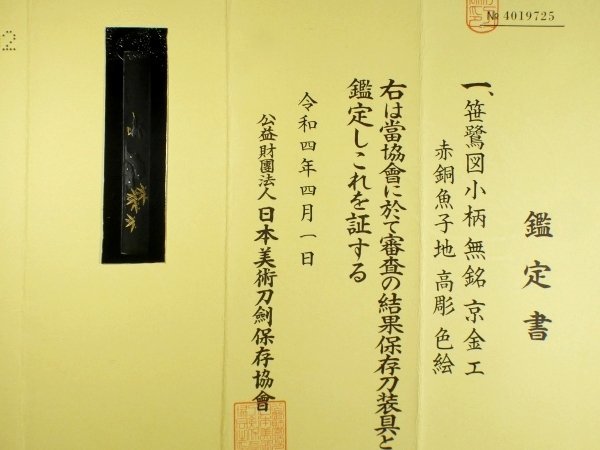 № 4019725
鑑定書
一、笹鷺図小柄 無銘 京金工
赤銅魚子地 高彫 色絵
右は當協會に於て審査の結果保存刀装具と
鑑定しこれを証する
令和四年四月一日
公益財團法人 日本美術刀劍保存協會
2